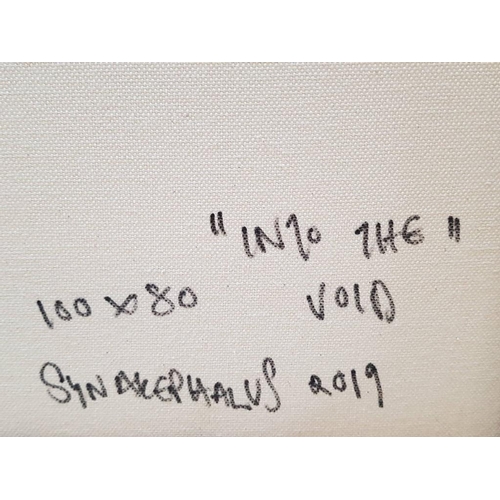 " INTO THE "
100 x 80 VOID
SYNAKEPHALUS 2019